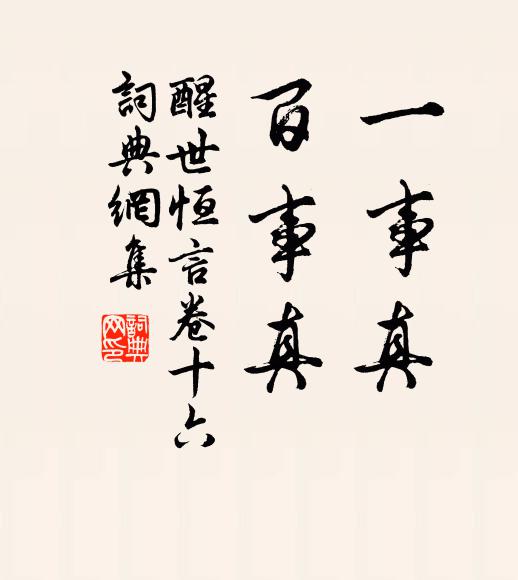 一事真
百事真
醒世恒言卷十六
詞典網集
詞典網印